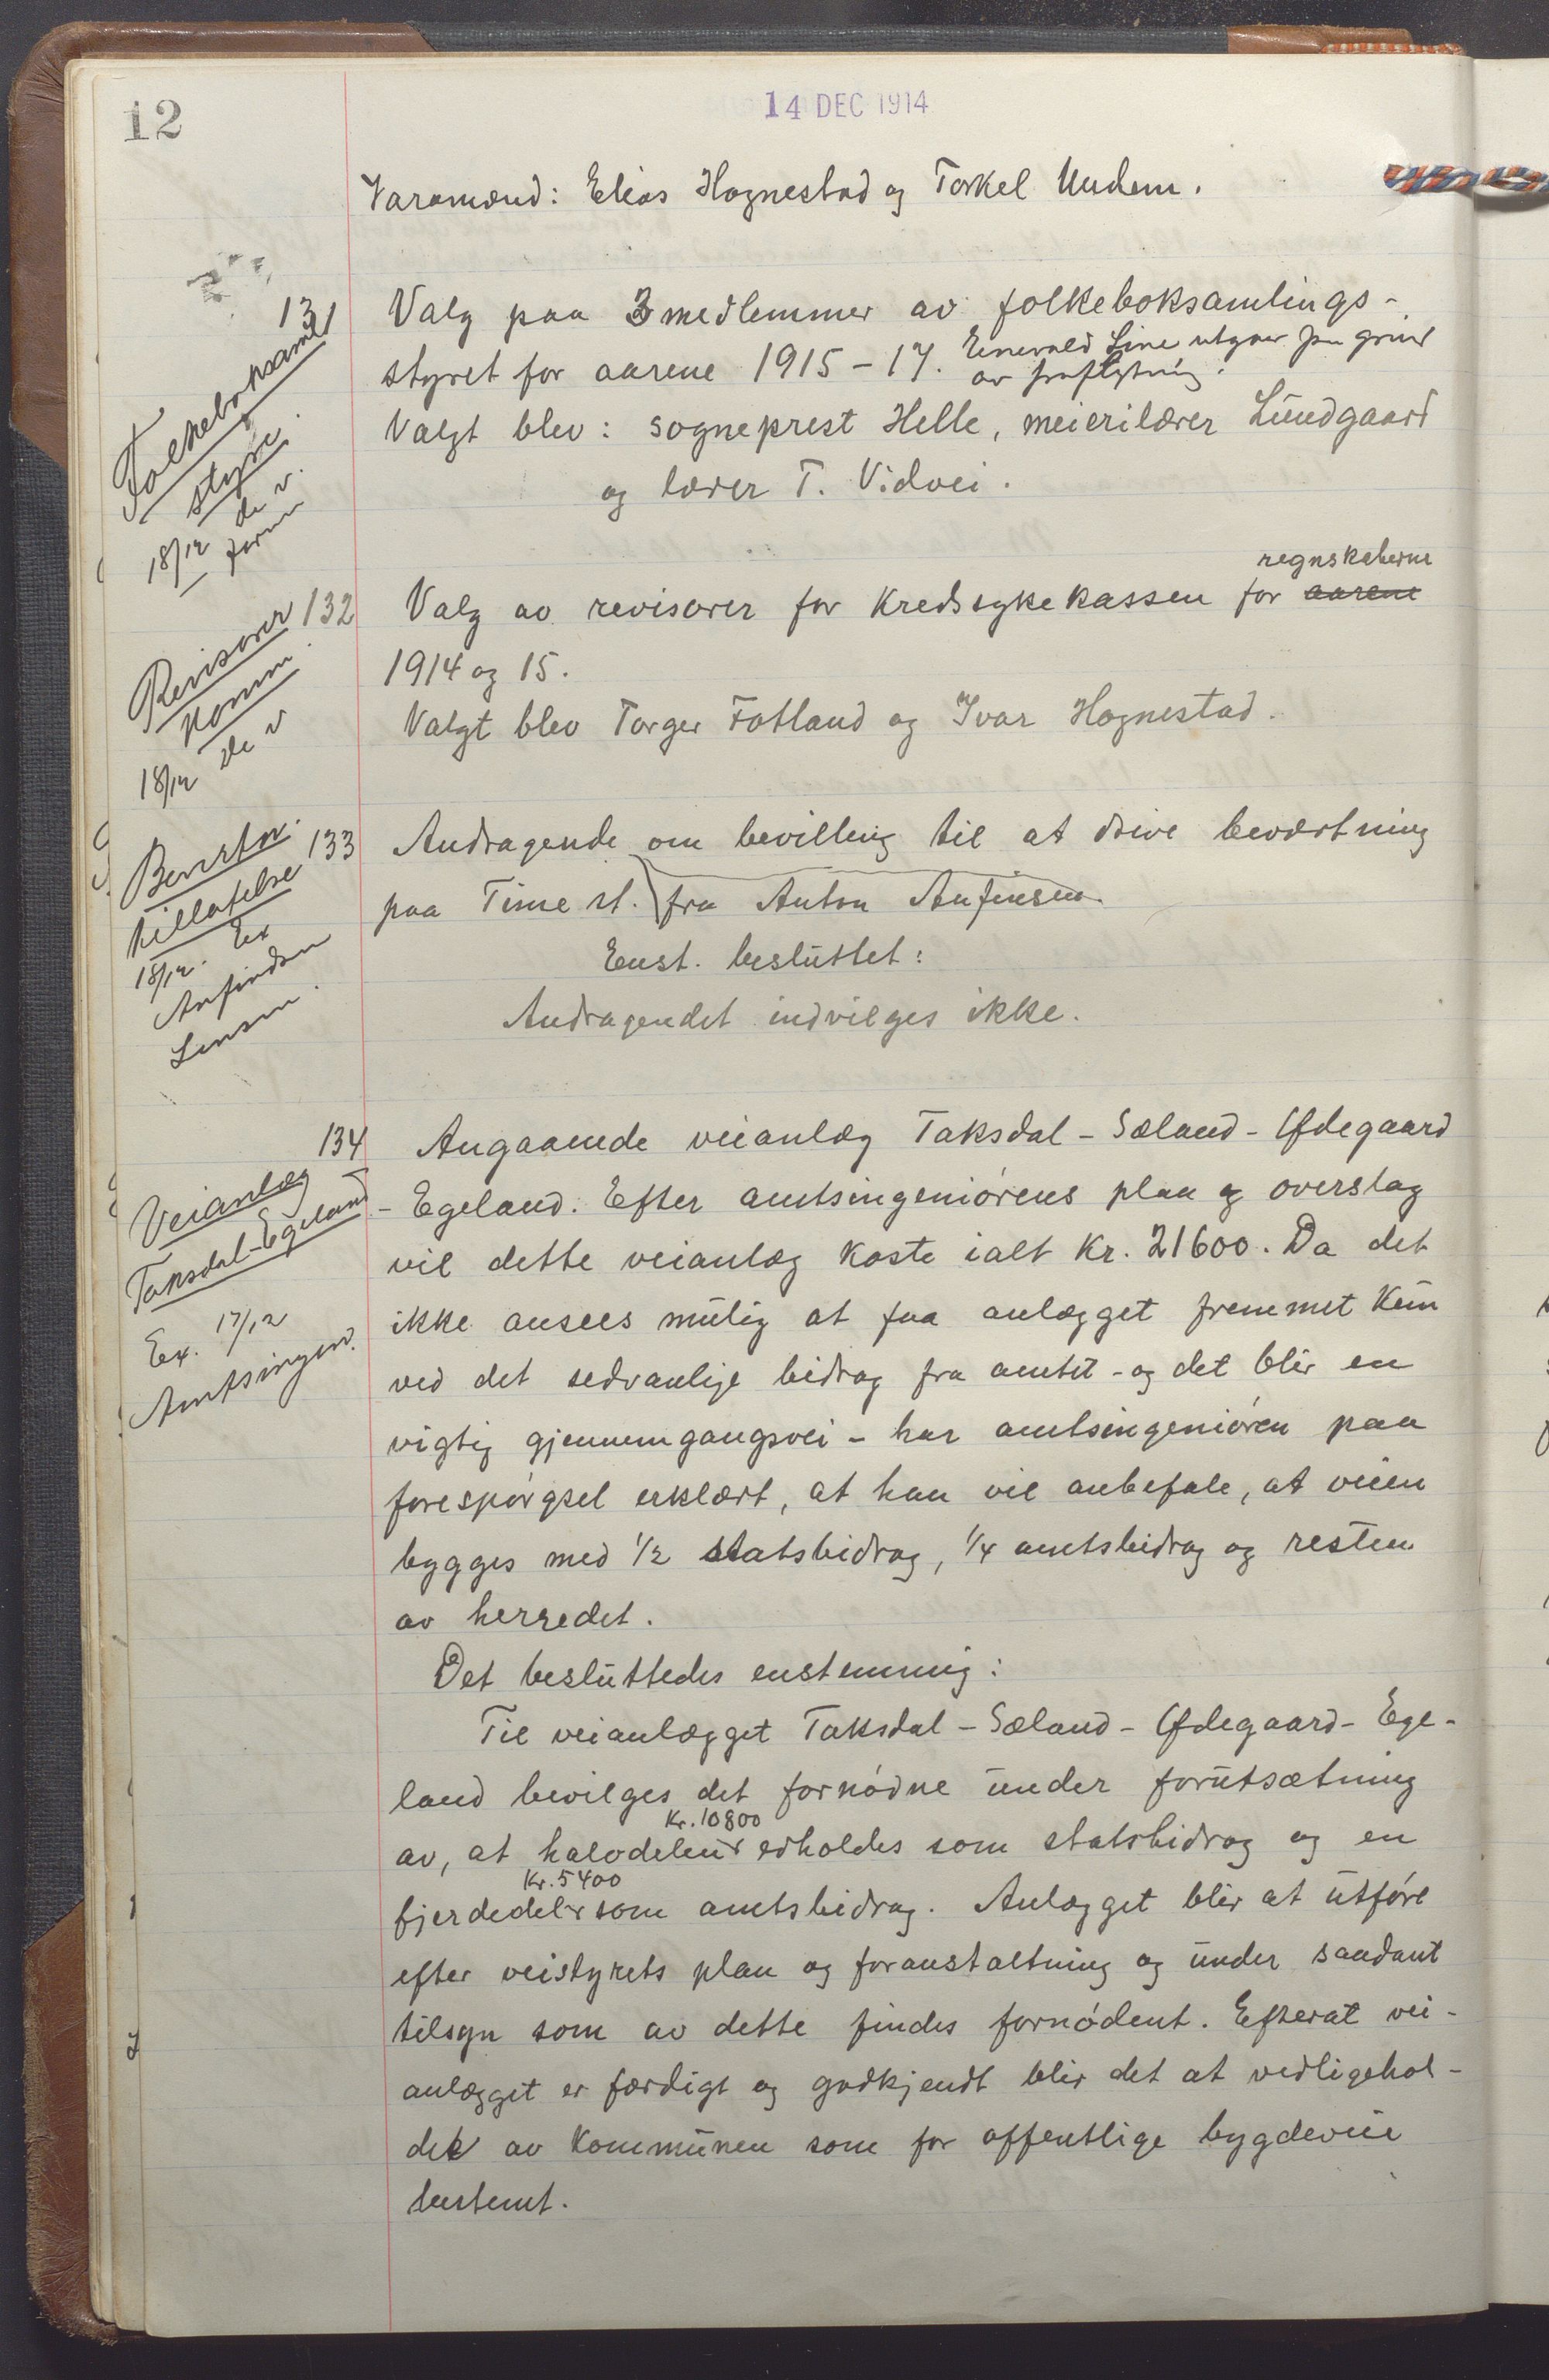 12
14 DEC 1914
Varamænd: Elias Hognestad og Torkel Undem.
131
Folkeboksaml
styre.
18/12 de v.
form
Valg paa 3 medlemmer av folkeboksamlings-
styret for aarene 1915-17. Enevald Line utgaar paa grund
av fraflytning.
Valgt blev: sogneprest Helle, meierilærer Lundgaard
og lærer T. Vidvei.
132
Revisorer
komm.
18/12 de v
Valg av revisorer for kredssykekassen for aarene regnskaberne
1914 og 15.
Valgt blev Torger Fotland og Ivar Hognestad.
133
Bevertn.
tillatelse
18/12. Ex
Anfindsen
Lensm.
Andragende om bevilling til at drive beværtning
paa Time st. fra Anton Anfinsen.
Enst. besluttet:
Andragendet indvilges ikke.
134
Veianlæg
Taksdal-Egeland
Ex. 17/12
Amtsingen.
Angaaende veianlæg Taksdal - Sæland - Ødegaard
- Egeland. Efter amtsingeniørens plan og overslag
vil dette veianlæg koste ialt kr. 21600. Da det
ikke ansees mulig at faa anlægget fremmet kun
ved det sedvanlige bidrag fra amtet - og det blir en
vigtig gjennemgangsvei - har amtsingeniøren paa
forespørgsel erklært, at han vil anbefale, at veien
bygges med 1/2 statsbidrag, 1/4 amtsbidrag og resten
av herredet.
Det besluttedes enstemmig:
Til veianlægget Taksdal - Sæland - Ødegaard - Ege-
land bevilges det fornødne under forutsætning
av, at halvdelen kr. 10800 erholdes som statsbidrag og en
fjerdedel kr. 5400 som amtsbidrag. Anlægget blir at utføre
efter veistyrets plan og foranstaltning og under saadant
tilsyn som av dette findes fornødent. Efterat vei-
anlægget er færdigt og godkjendt blir det at vedligehol-
de av kommunen som for offentlige bygdeveie
bestemt.